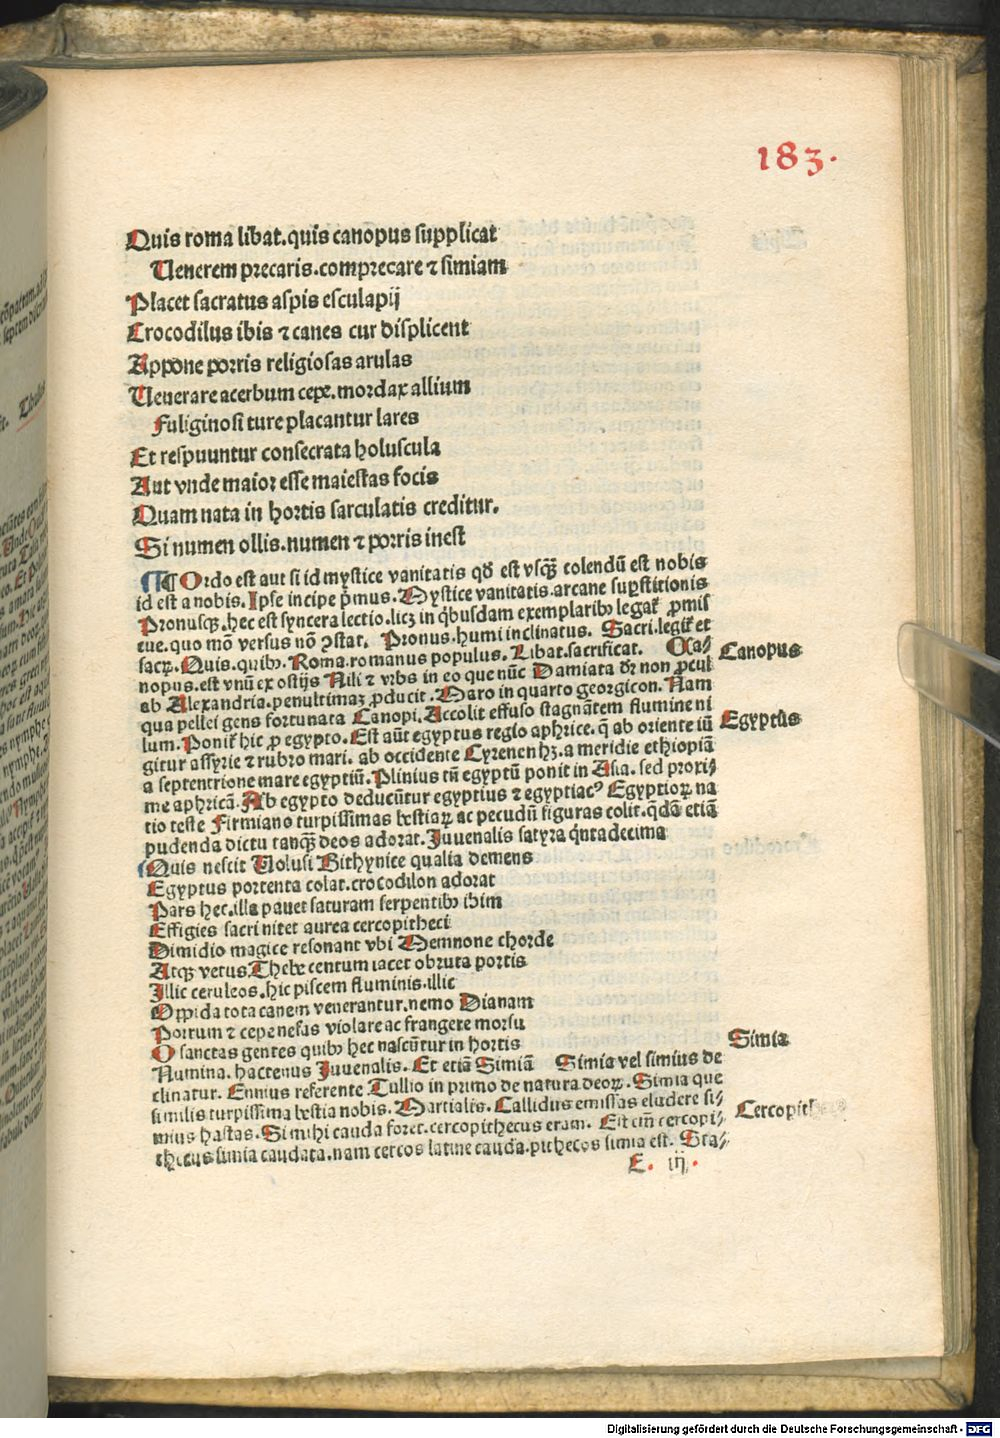 183.
Quis roma libat.quis canopus supplicat
Uenerem precaris.comprecare ⁊ simiam
Placet sacratus aspis esculapij
Crocodilus ibis ⁊ canes cur displicent
Appone porris religiosas arulas
Uenerare acerbum cepe.mordax allium
Fuliginosi ture placantur lares
Et respuuntur consecrata holuscula
Aut vnde maior esse maiestas focis
Quam nata in hortis sarculatis creditur.
Si numen ollis.numen ⁊ porris inest
¶ Ordo est aut si id mystice vanitatis qd̄ est vsqꝫ colendū est nobis
id est a nobis. Ipse incipe p̄mus. Mystice vanitatis.arcane sup̱stitionis
Pronusqꝫ.hec est syncera lectio.licꝫ in q̇busdam exemplaribꝰ legat᷑ ꝓmis
eue.quo mō versus nō ꝯstat. Pronus.humi inclinatus. Sacri.legit᷑ et
sacrꝝ.Quis.quibꝰ.Roma.romanus populus.Libat.sacrificat. Ca⸗
nopus.est vnū ex ostijs Nili ⁊ vrbs in eo que nūc Damiata dr̄ non ꝓcul
ab Alexandria.penultimaꝫ ꝓducit.Maro in quarto georgicon.Nam
qua pellei gens fortunata Canopi.Accolit effuso stagnātem flumine ni
lum.Ponit᷑ hic ꝓ egypto.Est aūt egyptus regio aphrice.q̄ ab oriente iū
gitur assyrie ⁊ rubro mari. ab occidente Cyrenen hꝫ.a meridie ethiopiā
a septentrione mare egyptiū.Plinius tn̄ egyptū ponit in Asia. sed proxi⸗
me aphricā. Ab egypto deducūtur egyptius ⁊ egyptiacꝰ Egyptioꝝ na
tio teste Firmiano turpissimas bestiaꝝ ac pecudū figuras colit.q̄dā etiā
pudenda dictu tanqꝫ deos adorat.Juuenalis satyra q̇ntadecima
Quis nescit Uolusi Bithynice qualia demens
Egyptus portenta colat.crocodilon adorat
Pars hec.illa pauet saturam serpentibꝰ ibim
Effigies sacri nitet aurea cercopitheci
Dimidio magice resonant vbi Memnone chorde
Atqꝫ vetus.Thebe centum iacet obruta portis
Illic ceruleos.hic piscem fluminis.illic
Oppida tota canem venerantur.nemo Dianam
Porrum ⁊ cepe nefas violare ac frangere morsu
O sanctas gentes quibꝰ hec nascūtur in hortis
Numina. hactenus Juuenalis. Et etiā Simiā Simia vel simius de
clinatur. Ennius referente Tullio in primo de natura deoꝝ.Simia que
similis turpissima bestia nobis. Martialis. Callidus emissas eludere si⸗
mius hastas.Si mihi cauda foret.cercopithecus eram. Est em̄ cercopi⸗
thecus simia caudata.nam cercos latine cauda.pithecos simia est. Sta⸗
E. iij.
Canopus
Egyptus
Simia
Digitalisierung gefördert durch die Deutsche Forschungsgemeinschaft - DFG